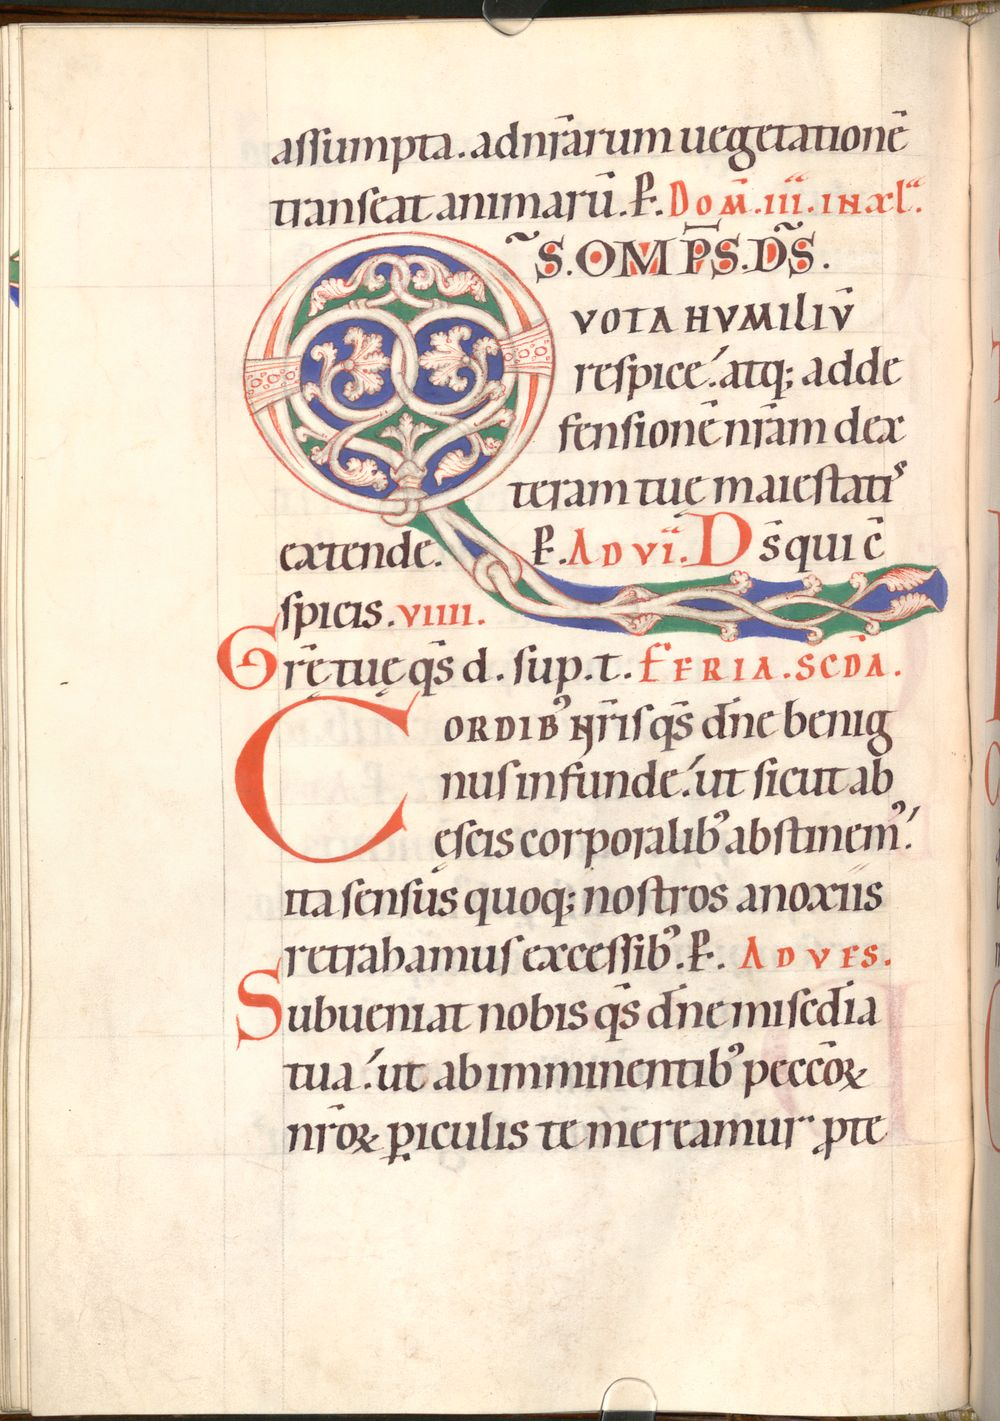 assumpta. ad nr̄arum uegetationē
transeat animarū. P̄. Dom̄. III. IN XL.
Q̄S. OMP̄S. D̄S.
VOTA HVMILIV̄
respice. atq; adde
fensionē nr̄am dex
teram tuę maiestatis
extende. P̄. AD VI. D s̄ qui c̄
spicis. VIIII.
Gr̄ę tuę q̄s d. sup. t. FERIA. SCD̄A.
CORDIB' nr̄is q̄s dn̄e benig
nus infunde. ut sicut ab
ęscis corporalib' abstinem'.
ita sensus quoq; nostros a noxiis
retrahamus excessib'. P̄. AD VES.
Subueniat nobis q̄s dn̄e misedīa
tua. ut ab imminentib' peccōꝝ
nr̄oꝝ ꝑiculis te mereamur ꝓte